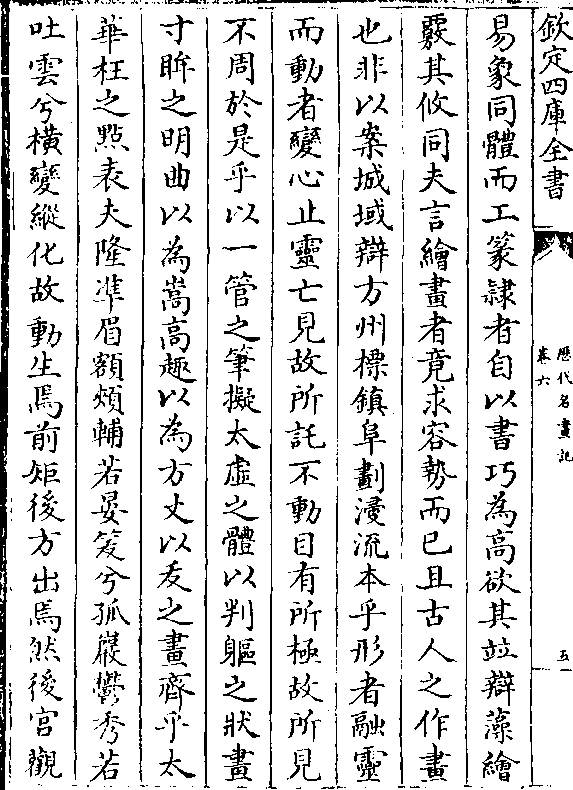 欽定四庫全書
歷代名畫記
卷六
五
易象同體而工篆隸者自以書巧為高欲其竝辯藻繪
覈其攸同夫言繪畫者竟求容勢而已且古人之作畫
也非以案城域辯方州標鎮阜劃浸流本乎形者融靈
而動者變心止靈亡見故所託不動目有所極故所見
不周於是乎以一管之筆擬太虛之體以判軀之狀畫
寸眸之明曲以為嵩高趣以為方丈以叐之畫齊乎太
華枉之點表夫隆準眉額頰輔若晏笑兮孤巖鬱秀若
吐雲兮橫變縱化故動生焉前矩後方出焉然後宮觀